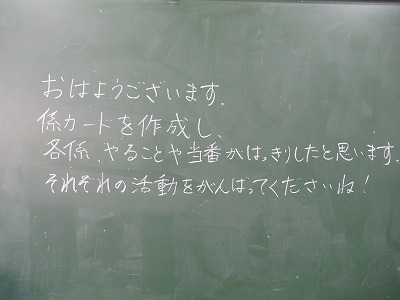 おはようございます。
係カードを作成し、
各係、やることや当番がはっきりしたと思います。
それぞれの活動をがんばってくださいね!